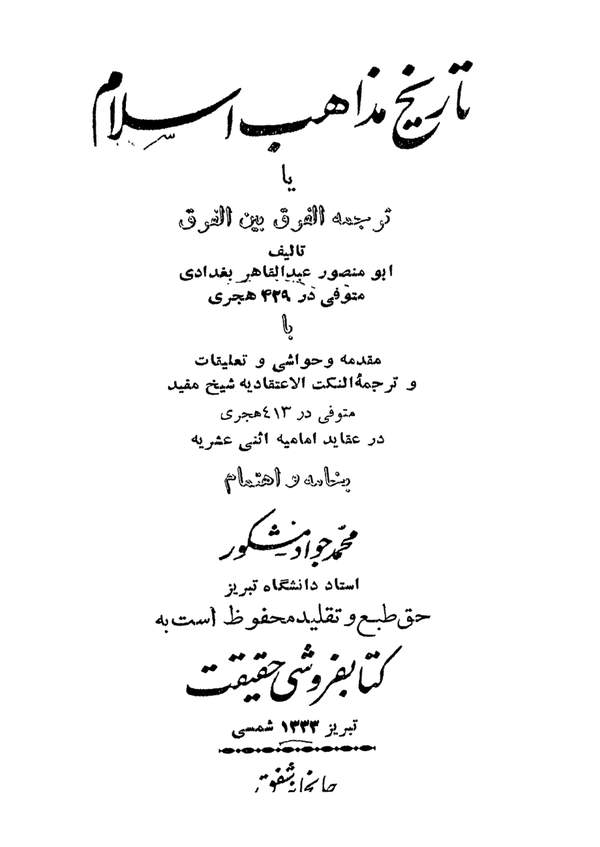 تاریخ مذاهب اسلام
یا
ترجمه الفرق بین الفرق
تالیف
ابو منصور عبدالقاهر بغدادی
متوفی در ۴۲۹ هجری
با
مقدمه وحواشی و تعلیقات
و ترجمهٔ النکت الاعتقادیه شیخ مفید
متوفی در ۴۱۳ هجری
در عقاید امامیه اثنی عشریه
بخامه و اهتمام
محمد جواد مشکور
استاد دانشگاه تبریز
حق طبع و تقلید محفوظ است به
کتابفروشی حقیقت
تبریز ۱۳۳۳ شمسی
چاپخانه شفق